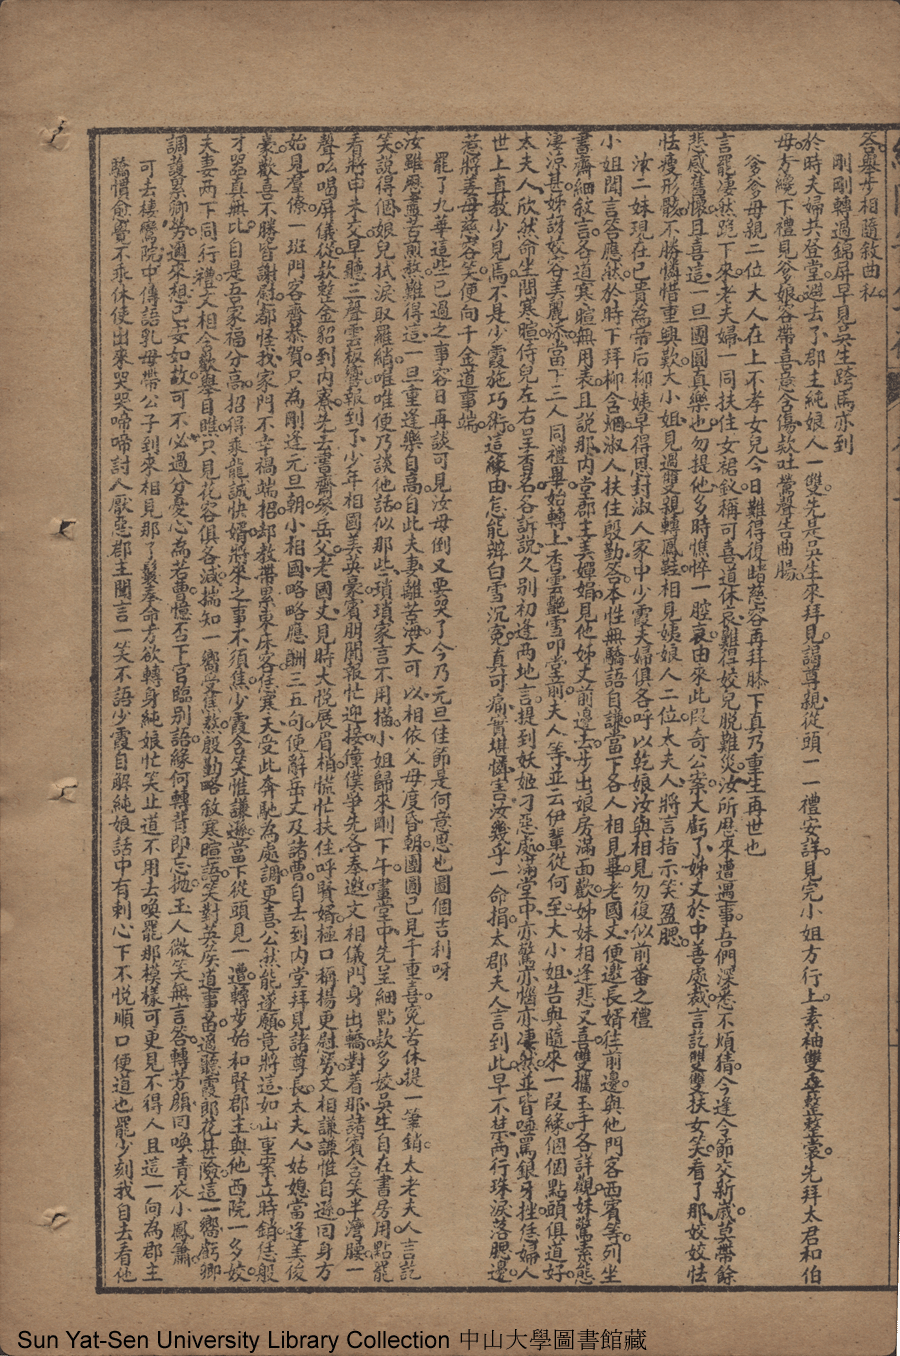 答舉步相隨敘曲私
剛剛轉過錦屏早見吳生跨馬亦到
於時夫婦共登堂避去了郡主純娘人一雙先是吳生來拜見謁尊親從頭一一禮安詳見完小姐方行上素袖雙垂整整裳先拜太君和伯
母方纔下禮見爹娘容帶喜意含傷欸吐鶯聲告曲膓
爹爹母親二位大人在上不孝女兒今日難得復睹慈容再拜膝下真乃重生再世也
言罷凄然跪下來老夫婦一同扶住女裙釵稱可喜道休哀難得姣兒脫難災汝所歷來遭遇事吾們深悉不煩猜今逢令節交新歲莫帶餘
悲感舊懷且喜這一旦團圓真樂也勿提他多時憔悴一腔哀由來此段奇公案大虧了姊丈於中善處裁言訖雙雙扶女笑看了那姣姣怯
怯瘦形骸不勝憐惜重興歎大小姐見過雙親轉鳳鞋相見姨娘人二位太夫人將言指示笑盈腮
汝二妹現在已貴為帝后柳姨早得恩封淑人家中少霞夫婦俱各呼以乾娘汝與相見勿復似前番之禮
小姐聞言答應然於時下拜柳含烟淑人扶住殷勤答本性無驕語自謙當下各人相見畢老國丈便邀長婿往前邊與他門客西賓等列坐
書齋細敘言各道寒暄無用表且說那內堂郡主美嬋娟見他姊丈前邊去步出娘房滿面歡姊妹相逢悲又喜雙攜玉手各詳觀妹驚素態
淒涼甚姊訝姿容美麗添當下三人同禮畢始轉上香雲艷雪叩堂前夫人等並云伊輩從何至大小姐告與隨來一段緣個個點頭俱道好
太夫人欣然命坐問寒暄侍兒左右呈香茗各訴說久別初逢兩地言提到妖姬刁惡處滿堂中亦驚亦惱亦凄然並皆唾罵狼牙挫侄婦人
世上真教少見焉不是少霞施巧術這緣由怎能辯白雪沉冤真可痛實堪憐害汝幾乎一命捐太郡夫人言到此早不禁兩行珠淚落腮邊
惹將姜母慈容笑便向千金道事端
罷了九華這些已過之事容日再談可見汝母倒又要哭了今乃元旦佳節是何意思也圖個吉利呀
汝雖歷盡苦煎熬難得這一旦重逢樂自高自此夫妻離苦海大可以相依父母度昏朝團圓已見千重喜冤苦休提一筆銷太老夫人言訖
笑說得個娘兒拭淚取羅綃唯唯便乃談他話似那些瑣瑣家言不用描小姐歸來剛下午畫堂中先呈細點款多姣吳生自在書房用點罷
看將申未交早聽三聲雲板響報到了少年相國美英豪賓朋聞報忙迎接僮僕爭先各奉邀文相儀門身出轎對着那諸賓含笑半灣腰一
聲吆喝屏儀從款整金貂到內寮先去書齋參岳父老國丈見時大悅展眉梢慌忙扶住呼賢婿極口稱揚更慰勞文相謙謙惟自遜回身方
始見羣僚一班門客齊恭賀只為剛逢元旦朝小相國略略應酬三五句便辭岳丈及諸曹自去到內堂拜見諸尊長太夫人姑媳當逢美俊
豪歡喜不勝皆謝慰都怪我家門不幸禍端招却教帶累東床客侄寒天受此奔馳為處調更喜公然能遂願竟將這如山重案立時銷佳般
才器真無比自是吾家福分高招得乘龍誠快婿將來之事不須焦少霞含笑惟謙遜當下從頭見一遭轉步始和賢郡主與他西院一多姣
夫妻兩下同行禮文相含歡舉目瞧只見花容俱各減揣知一嚮受焦熬殷勤略敘寒暄語笑對英侯道事苗過聽霞郎花甚險這一嚮虧卿
調護累卿勞適來想已妥如故可不必過分憂心為若曹憶否下官臨別語緣何轉背即忘拋玉人微笑無言答轉芳顏回喚青衣小鳳簫
可去棲鸞院中傳語乳母帶公子到來相見那了鬟奉命方欲轉身純娘忙笑止道不用去喚罷那模樣可更見不得人且這一向為郡主
驕慣愈覺不乖休使出來哭哭啼啼討人厭惡郡主聞言一笑不語少霞自解純娘話中有刺心下不悅順口便道也罷少刻我自去看他
Sun Yat-Sen University Library Collection 中山大學圖書館藏